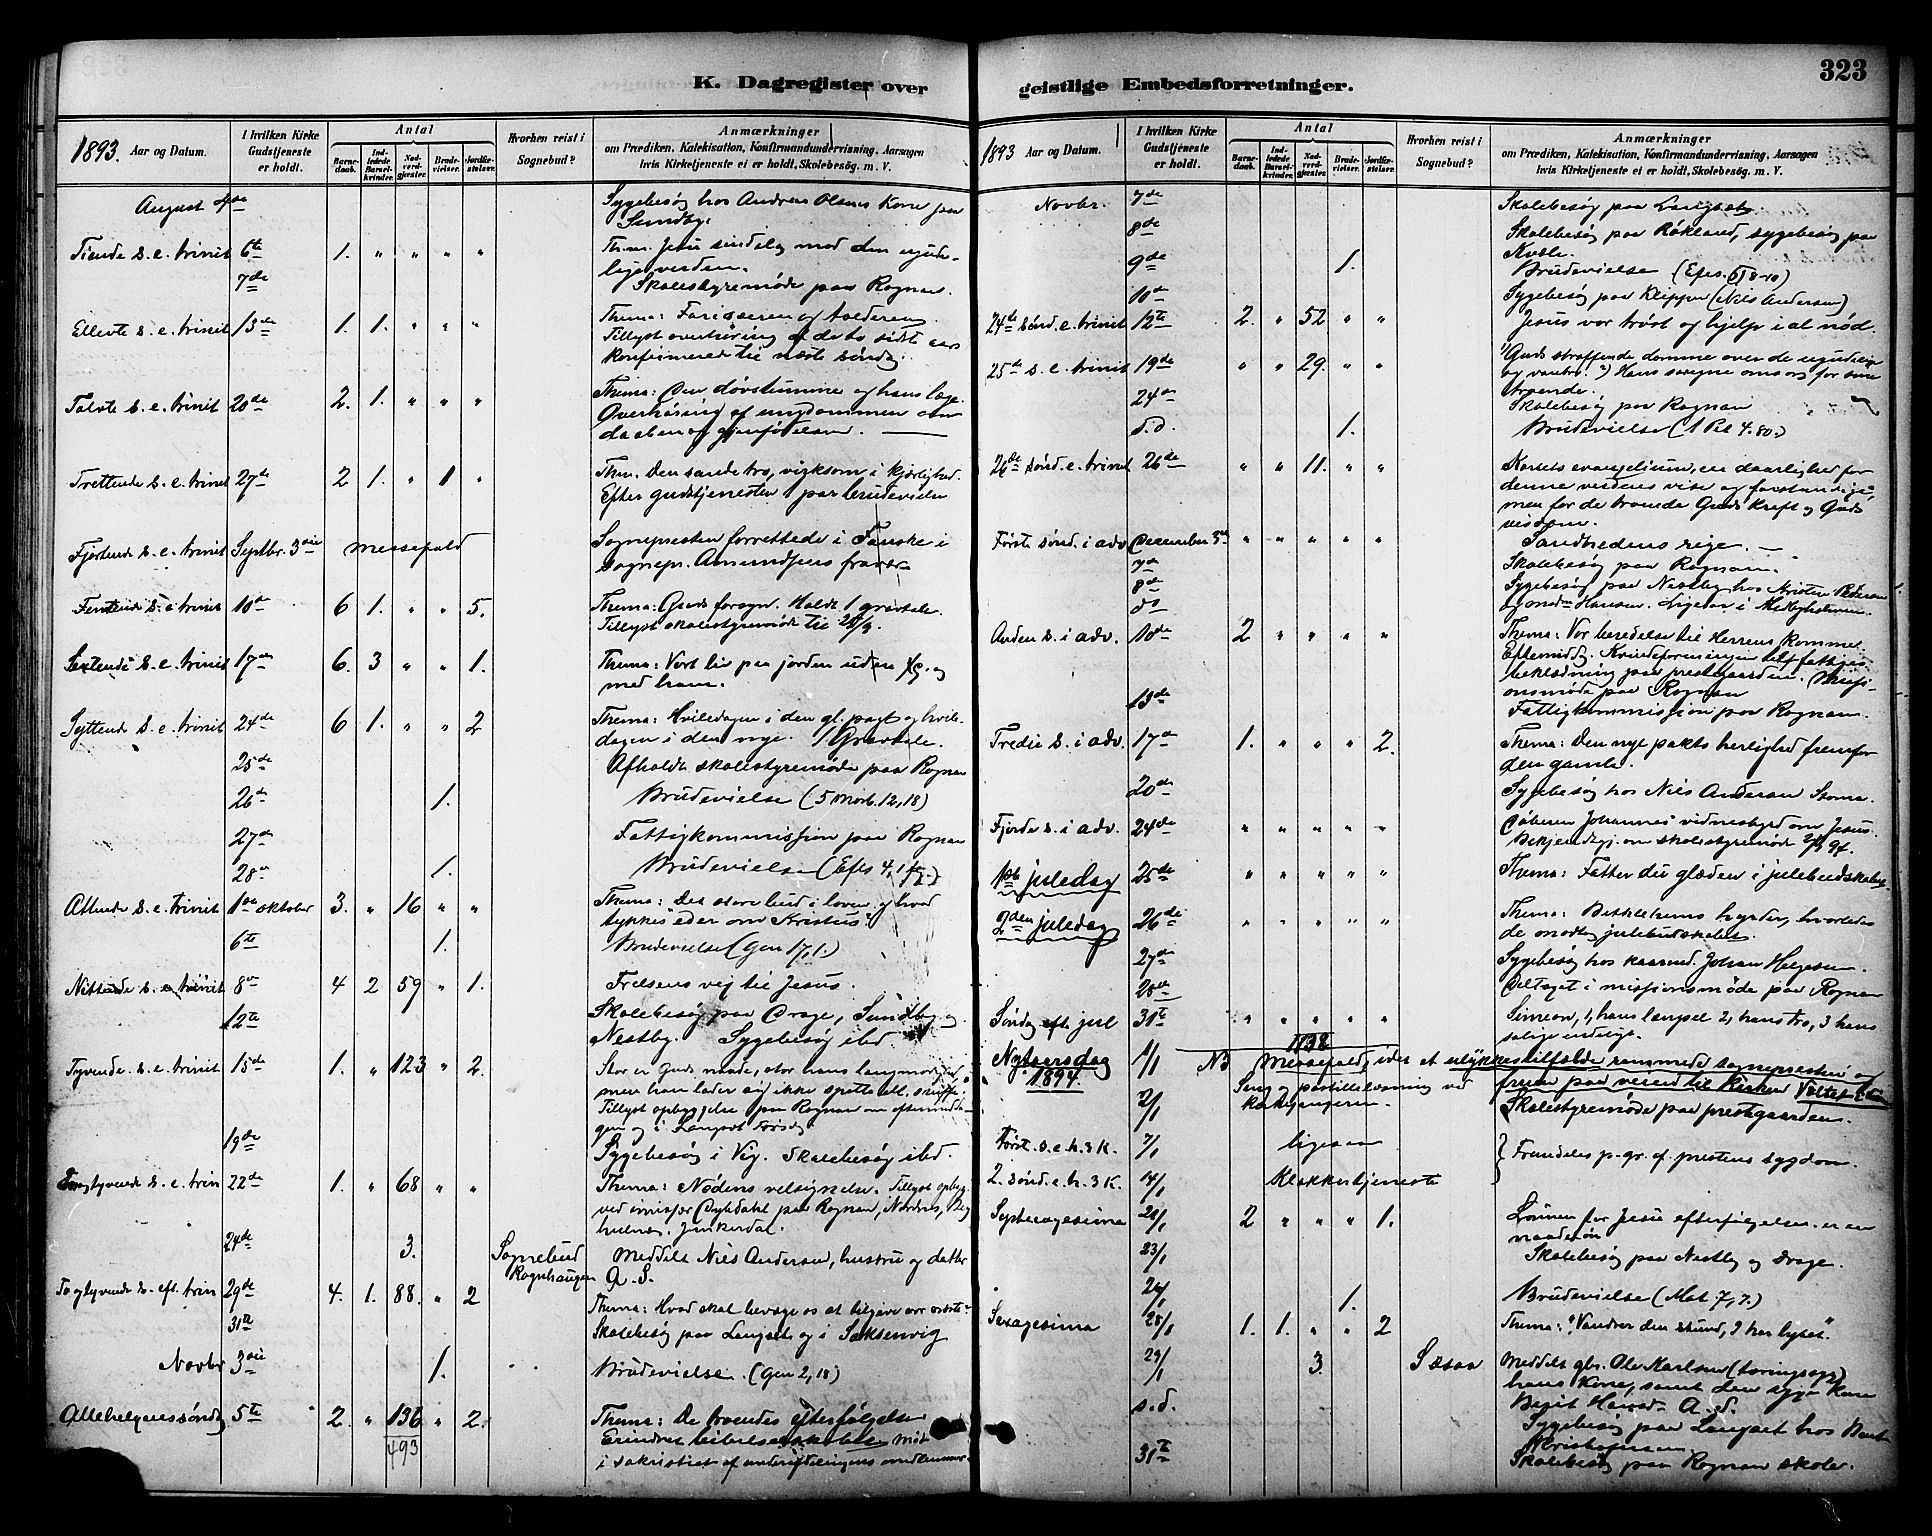 323
K. Dagregister over
geistlige Embedsforretninger.
1893. Aar og Datum.
I hvilken Kirke Gudstjeneste er holdt.
Antal
Barnedaab.
Indledede Barselkvinder.
Nadverdgjæster.
Brudevielser.
Jordfæstelser.
Hvorhen reist i Sognebud?
Anmærkninger
om Prædiken, Katekisation, Konfirmandundervisning, Aarsagen
hvis Kirketjeneste ei er holdt, Skolebesög. m. V.
August 4de Sygebesøg hos Andreas Olsens Kone paa
Sundby.
Tiende s. e. trinit 6te 1. " " " " Them. Jesu sindelag mod den ugude-
lige verden.
7de Skolestyremøde paa Rognan.
Ellevte s. e. trinit 13de 1. 1. " " " Thema: Farisæeren og tolderen.
Tillyst overhøring af de to sidste aars
konfirmerede til næste søndag.
Tolvte s. e. trinit 20de 2. 1. " " " Thema: Den døvstumme og hans læge.
Overhøring af ungdommen om
daaben og gjenfødelsen.
Trettende s. e. trinit 27de 2 1. " 1 " Thm. Den sande tro, virksom i kjærlighed.
Efter gudstjenesten 1 par brudevielse
Fjortende s. e. trinit Septbr. 3die messefald Sognepresten forrettede i Fauske i
Sognepr. Amundsens fravær
Femtende s. e. trinit 10de 6 1. " " 5. Thema: Guds forsyn. Holdt 1 gravtale.
Tillyst skolestyremøde til 25/9.
Sextende s. e. trinit 17de 6. 3 " " 1. Thema: Vort liv paa jorden uden og
med ham.
Syttende s. e. trinit 24de 6 1. " " 2 Thema: Hviledagen i den gl. pagt og hvile-
dagen i den nye. 1 Gravtale.
25de Afholdt skolestyremøde paa Rognan
26de 1. Brudevielse (5 Mos. 12,18)
27de Fattigkommission paa Rognan
28de 1. Brudevielse (Efes 4,1 fg.)
Attende s. e. trinit 1ste oktober 3. " 16 " " Thema: Det store bud i loven og hvad
tykkes eder om Kristus?
6te 1. Brudevielse (Gen 17,1.)
Nittende s. e. trinit 8de 4 2 59 " 1. Frelsens vej til Jesus.
12te Skolebesøg paa Drage, Sundby og
Nestby. Sygebesøg ibd.
Tyvende s. e. trinit 15de 1. " 123 " 2. Stor er Guds naade, stor hans langmodighed,
men han lader sig ikke spotte
Tillyst opbyggelse paa Rognan om eftermidda-
gen og i Langset Torsdag
19de Sygebesøg i Vig. Skolebesøg ibd.
Enogtyvende s. e. trin 22de 1. " 68 " " Thema: Nødens velsignelse. Tillyst opbyg.
ved paa Rognan, Nordnes,
Junkerdal.
24de 3. Sognebud Rognhaugen Meddelt Nils Andersen, hustru og datter
A. S.
Toogtyvende s. eft. trin 29de 4. 1. 88. " 2 Thema: Hvad skal bevæge os at tilgive vor næste.
31te Skolebesøg paa Langset og i Saksenvig
Novbr 3die 1. Brudevielse. (Gen 2,18)
Allehelgenssøndag 5te 2. " 136 " 2. Thema: De troendes efterfølgelse
493
Erindret bibelselskabet. Møde
i sakristiet af underafdelingens medlemmer.
1893 Aar og Datum.
I hvilken Kirke Gudstjeneste er holdt.
Antal
Barnedaab.
Indledede Barselkvinder.
Nadverdgjæster.
Brudevielser.
Jordfæstelser.
Hvorhen reist i Sognebud?
Anmærkninger
om Prædiken, Katekisation, Konfirmandundervisning, Aarsagen
hvis Kirketjeneste ei er holdt, Skolebesög. m. V.
Novbr. 7de Skolebesøg paa Langset
8de Skolebesøg paa Røkland, sygebesøg paa
Kvæle.
9de 1. Brudevielse (Efes. 6,18-10)
10de Sygebesøg paa Klippen (Nils Andersen)
24de sønd. e. trinit 12te 2. " 52 " " Jesus vor trøst og hjelp i al nød.
25de s. e. trinit 19de " " 29. " " 1) Guds straffende domme over de ugudelige
og vantro. 2) Hans særegne omsorg for sine
troende.
24de Skolebesøg paa Rognan
s.d. 1. Brudevielse (1 Pet 4.80.)
26de sønd. e. trinit 26de " " 11. " " Korsets evangelium, en daarlighed for
denne verdens vise og forstandige,
men for de troende Guds kraft og Guds
visdom.
Første sønd. i adv December 3de " " " " " Sandhedens rige.
7de Skolebesøg paa Rognan.
8de Sygebesøg paa Nestby hos Kristen Pedersen
ds og Hansen. Ligesaa i
Anden s. i adv. 10de 2 " " " " Thema: Vor beredelse til Herrens komme.
Eftermiddag Kvindeforeningen til fattiges
beklædning paa prestegaarden. Missi-
onsmøde paa Rognan
13de Fattigkommission paa Rognan.
Tredie s. i adv. 17de 1. " " " 2. Thema: Den nye pakts herlighed fremfor
den gamle.
20de Sygebesøg hos Nils Andersen Storma.
Fjerde s. i adv. 24de " " " " " Døberen Johannes' vidnesbyrd om Jesus.
Bekjendtgj. om skolestyremøde 2/1 94.
1ste juledag 25de " " " " " Thema: Fatter du glæden i julebudskabet.
2den juledag 26de " " " " " Thema: Bethlehems hyrder, hvorledes
de modtog julebudskabet.
27de Sygebesøg hos kaarmd. Johan Helgesen.
28de Deltaget i missionsmøde paa Rognan
Søndag eft jul 31te " " " " " Simeon, 1, hans længsel 2, hans tro, 3 hans
1132 salige udsigt.
Nytaarsdag 1/1 NB Messefald, idet et ulykkestilfælde rammede sognepresten og
1894. Sang og postillelæsning ved fruen paa veien til kirken
kirkesangeren.
2/1 Skolestyremøde paa prestegaarden.
Først. s. e. h. 3 K. 7/1 ligesaa } Fremdeles p. gr. af prestens sygdom.
2. sønd. e. h. 3 K. 14/1 Klokkertjeneste
Septuagesima 21/1 2 " " " 1. Lønnen for Jesu efterfølgelse er en
naadeløn
23/1 Skolebesøg paa Nestby og Drage.
24/1 1. Brudevielse (Mat. 7,7.)
Sexagesima 28/1 1. 1. " " 2 Thema: "Vandrer den stund, I har lyset".
29/1 3. Meddelt gbr. Ole Karlsen
hans Kone, samt den syge Kone
s.d. Berit A. S.
Sygebesøg paa Langset hos Bent
Kristofersen.
31te Skolebesøg paa Rognan skole.